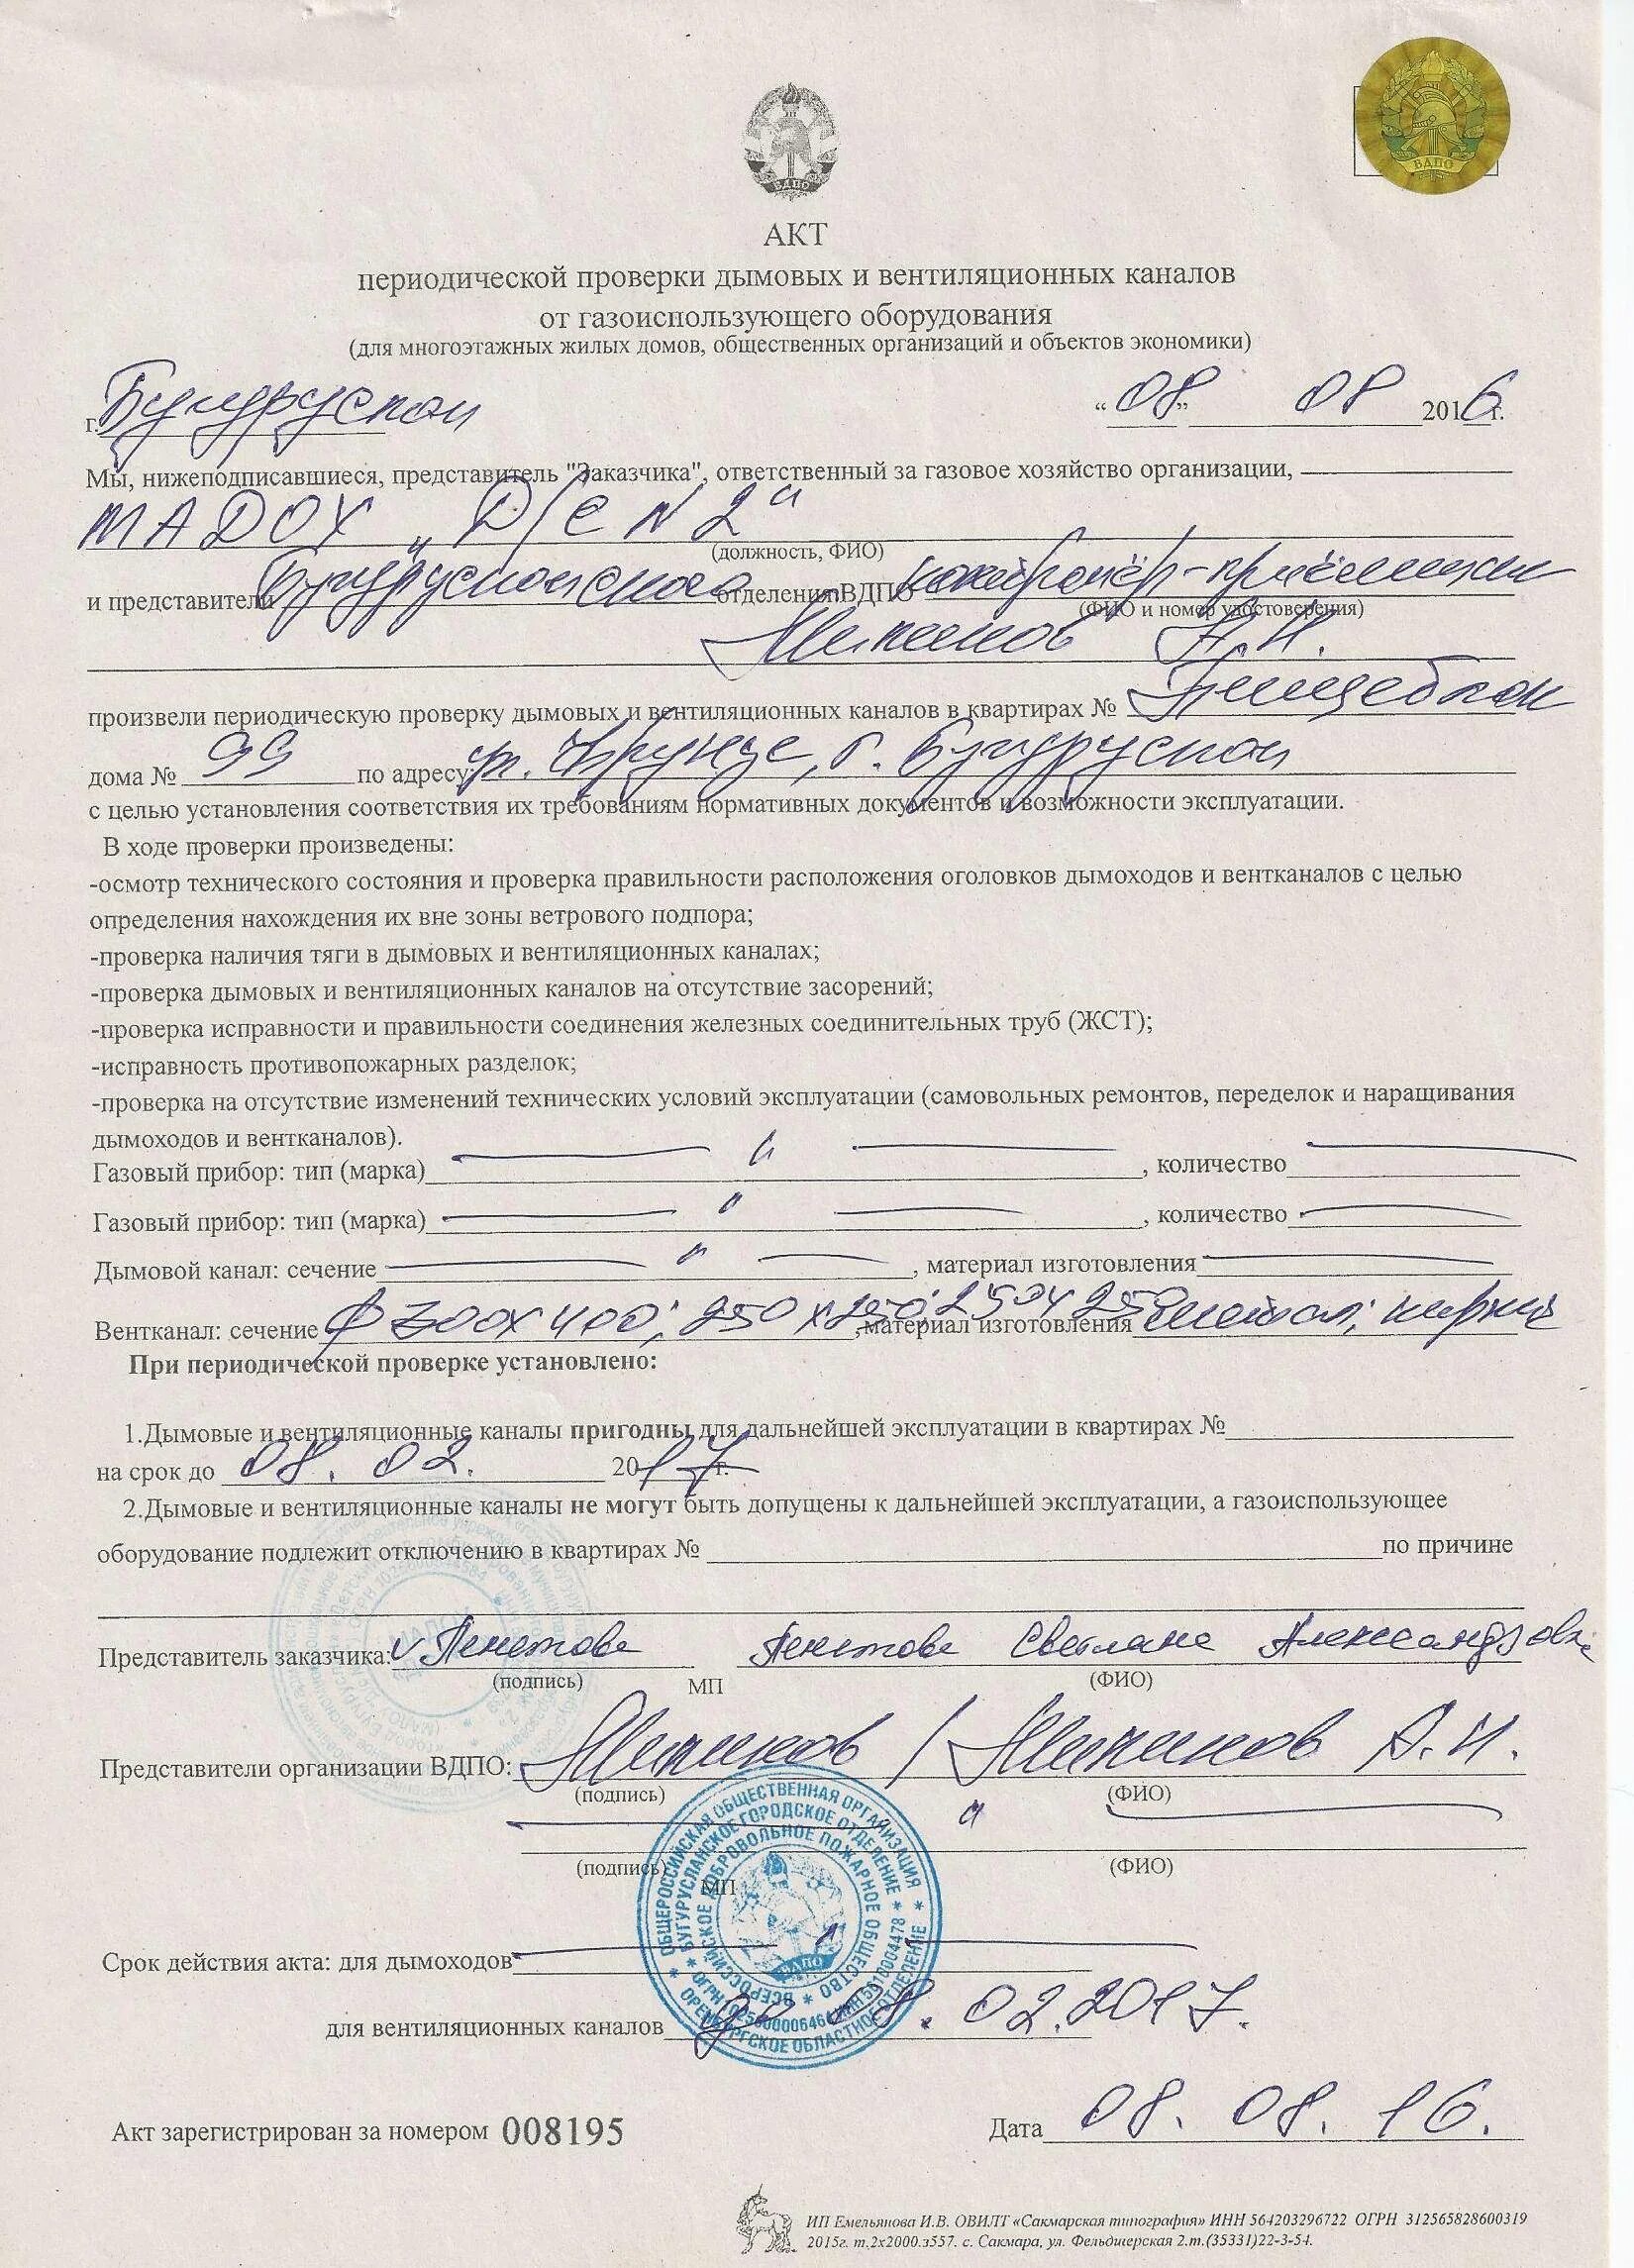 ВДПО
ВДПО
АКТ
периодической проверки дымовых и вентиляционных каналов
от газоиспользующего оборудования
(для многоэтажных жилых домов, общественных организаций и объектов экономики)
г. Бугуруслан “08” 08 2016 г.
Мы, нижеподписавшиеся, представитель "Заказчика", ответственный за газовое хозяйство организации,
МАДОУ „Д/С N 2“
(должность, ФИО)
и представители Бугурусланского отделения ВДПО контролёр-приёмщик
(ФИО и номер удостоверения)
произвели периодическую проверку дымовых и вентиляционных каналов в квартирах № Пищеблок
дома № 99 по адресу: ул. Фрунзе, г. Бугуруслан
с целью установления соответствия их требованиям нормативных документов и возможности эксплуатации.
В ходе проверки произведены:
-осмотр технического состояния и проверка правильности расположения оголовков дымоходов и вентканалов с целью
определения нахождения их вне зоны ветрового подпора;
-проверка наличия тяги в дымовых и вентиляционных каналах;
-проверка дымовых и вентиляционных каналов на отсутствие засорений;
-проверка исправности и правильности соединения железных соединительных труб (ЖСТ);
-исправность противопожарных разделок;
-проверка на отсутствие изменений технических условий эксплуатации (самовольных ремонтов, переделок и наращивания
дымоходов и вентканалов).
Газовый прибор: тип (марка) — " — , количество —
Газовый прибор: тип (марка) — " — , количество —
Дымовой канал: сечение — " — , материал изготовления —
Вентканал: сечение ф 300х400; 250х250; 250х250 , материал изготовления металл; кирпич
При периодической проверке установлено:
1.Дымовые и вентиляционные каналы пригодны для дальнейшей эксплуатации в квартирах №
на срок до 08. 02. 2017 г.
2.Дымовые и вентиляционные каналы не могут быть допущены к дальнейшей эксплуатации, а газоиспользующее
оборудование подлежит отключению в квартирах № по причине
Представитель заказчика: Светлана Александровна
(подпись) МП (ФИО)
Представители организации ВДПО:
(подпись) (ФИО)
— " —
(подпись) (ФИО)
МП
ОБЩЕРОССИЙСКАЯ ОБЩЕСТВЕННАЯ ОРГАНИЗАЦИЯ
БУГУРУСЛАНСКОЕ ГОРОДСКОЕ ОТДЕЛЕНИЕ
ВСЕРОССИЙСКОЕ ДОБРОВОЛЬНОЕ ПОЖАРНОЕ ОБЩЕСТВО
ОРЕНБУРГСКОЕ ОБЛАСТНОЕ ОТДЕЛЕНИЕ
ВДПО
Срок действия акта: для дымоходов — " —
для вентиляционных каналов до 08. 02. 2017.
Акт зарегистрирован за номером 008195 Дата 08. 08. 16.
ИП Емельянова И.В. ОВИЛТ «Сакмарская типография» ИНН 564203296722 ОГРН 312565828600319
2015г. т.2х2000.з557. с. Сакмара, ул. Фельдшерская 2.т.(35331)22-3-54.